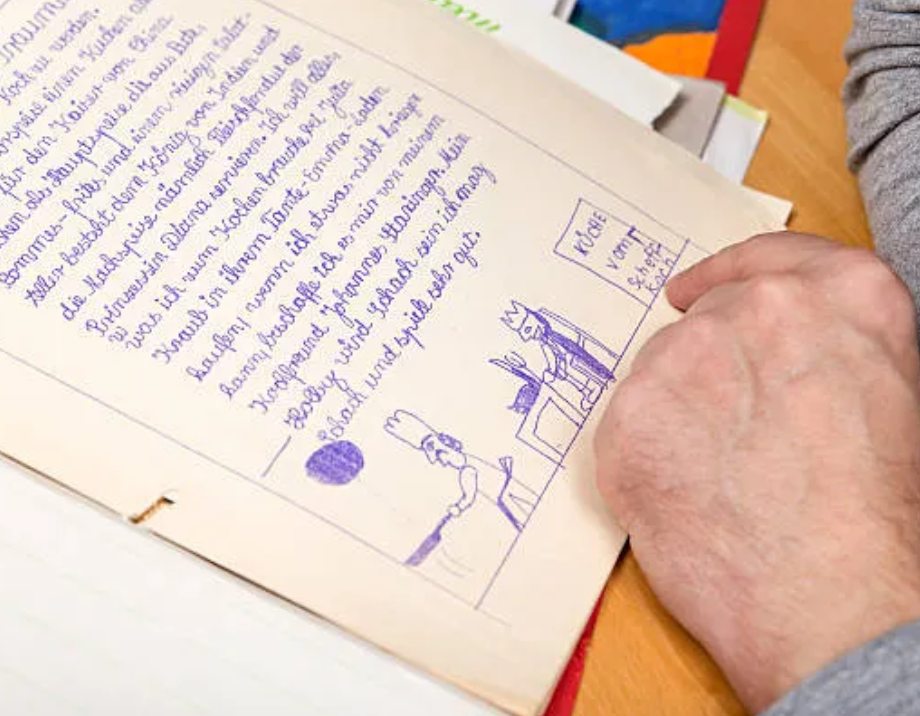 Traumb
Koch zu werden.
einen Kuchen
für den Kaiser von China
als Hauptspeise dit aus Rote,
Pommes-frites und einen riesigen Salat-
teller besteht dem König von Indien und
die Nachspeise nämlich Fleischfondue der
Prinzessin Diana servieren. Ich will alles
was ich zum Kochen brauche bei Jutta
Kraub in ihrem Tante-Emma-Laden
kaufen, wenn ich etwas nicht kriege
dann beschaffe ich es mir von meinem
Kochfreund Johannes Haringer. Mein
Hobby wird Schach sein ich mag
Schach und spiel sehr gut.
KÜCHE
vom
Schoffl
Koch